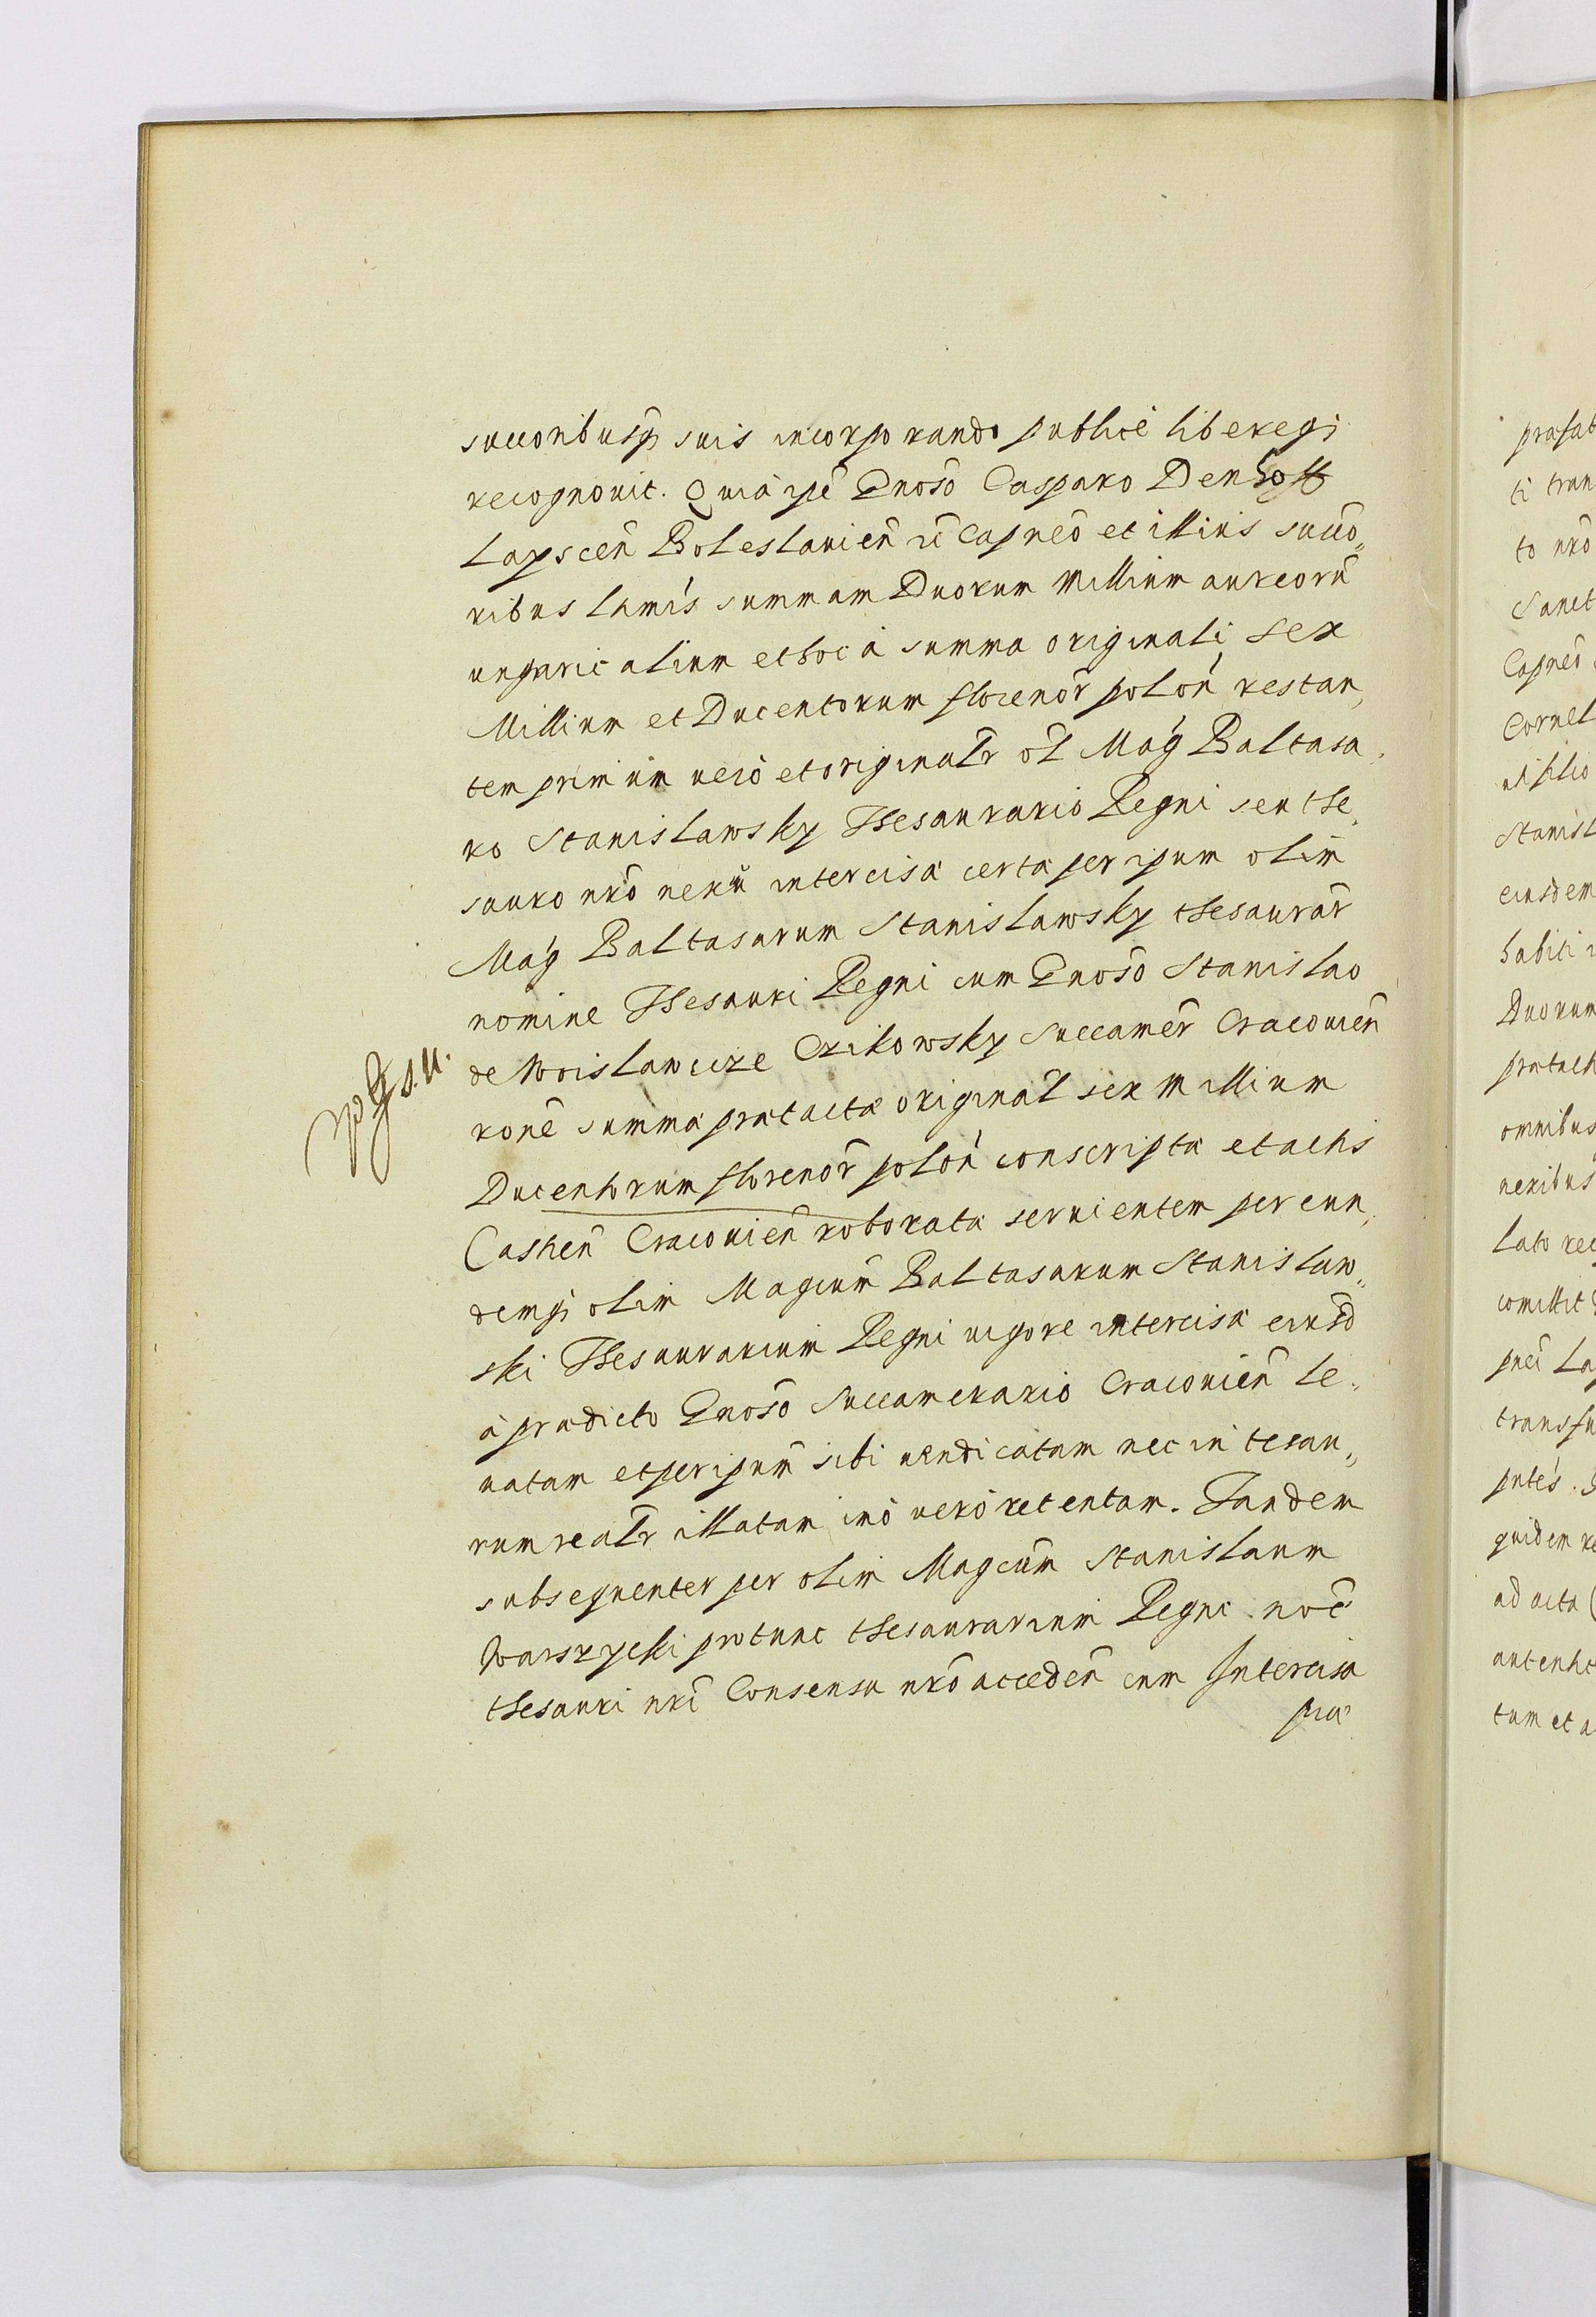 succoribusq; suis incorporando publicè libereq;
recognouit. Quià ipē Gnōso Casparo Denhoff
Lapscen̄ Boleslauien̄ zc̄ Capneō et illius succo„
ribus lamis summam Duorum Millium aureorū
ungaricalium et hoc à summa originali sex
Millium et Ducentorum florenor̄ polon̄ restan„
tem primum uerò et originalr̄ ol̄ Mag Baltasa„
ro Stanislawsky Thesaurario Regni seu the„
sauro nrō uerū intercisa certa per ipsum olim
Mag Baltasarum Stanislawsky thesaurar̄
nomine Thesauri Regni cum Gnōso Stanislao
de Woislawicze Czikowsky Succamer̄ Cracouien̄
rōne summa prætacta original̄ sex Millium
Ducentorum florenor̄ polon̄ conscripta et actis
Castren̄ Cracouien̄ roborata seruientem per eun„
demq; olim Magcum̄ Baltasarum Stanislaw„
ski Thesaurarium Regni uigore intercisa eiusd̄
à prædicto Gnōso Succamerario Cracouien̄ le„
uatam et per ipsum sibi uendicatam nec in tesau„
rum realr̄ illatam imò uerò retentam. Tandem
subsequenter per olim Magcum̄ Stanislaum
Warszycki protunc thesaurarium Regni noē
thesauri nrī Consensu nrō acceden̄ cum Intercisa
præ
præfat
ti tran
to nrō
Sanct
Capneō
Cornel
Stanisl
eiusdem
habiti
Duorum
prætact
omnibus
nexibus
lato rec
comittit
pnēi La
transfu
pntēs.
quidem re
ad acta
autentic
tum et a